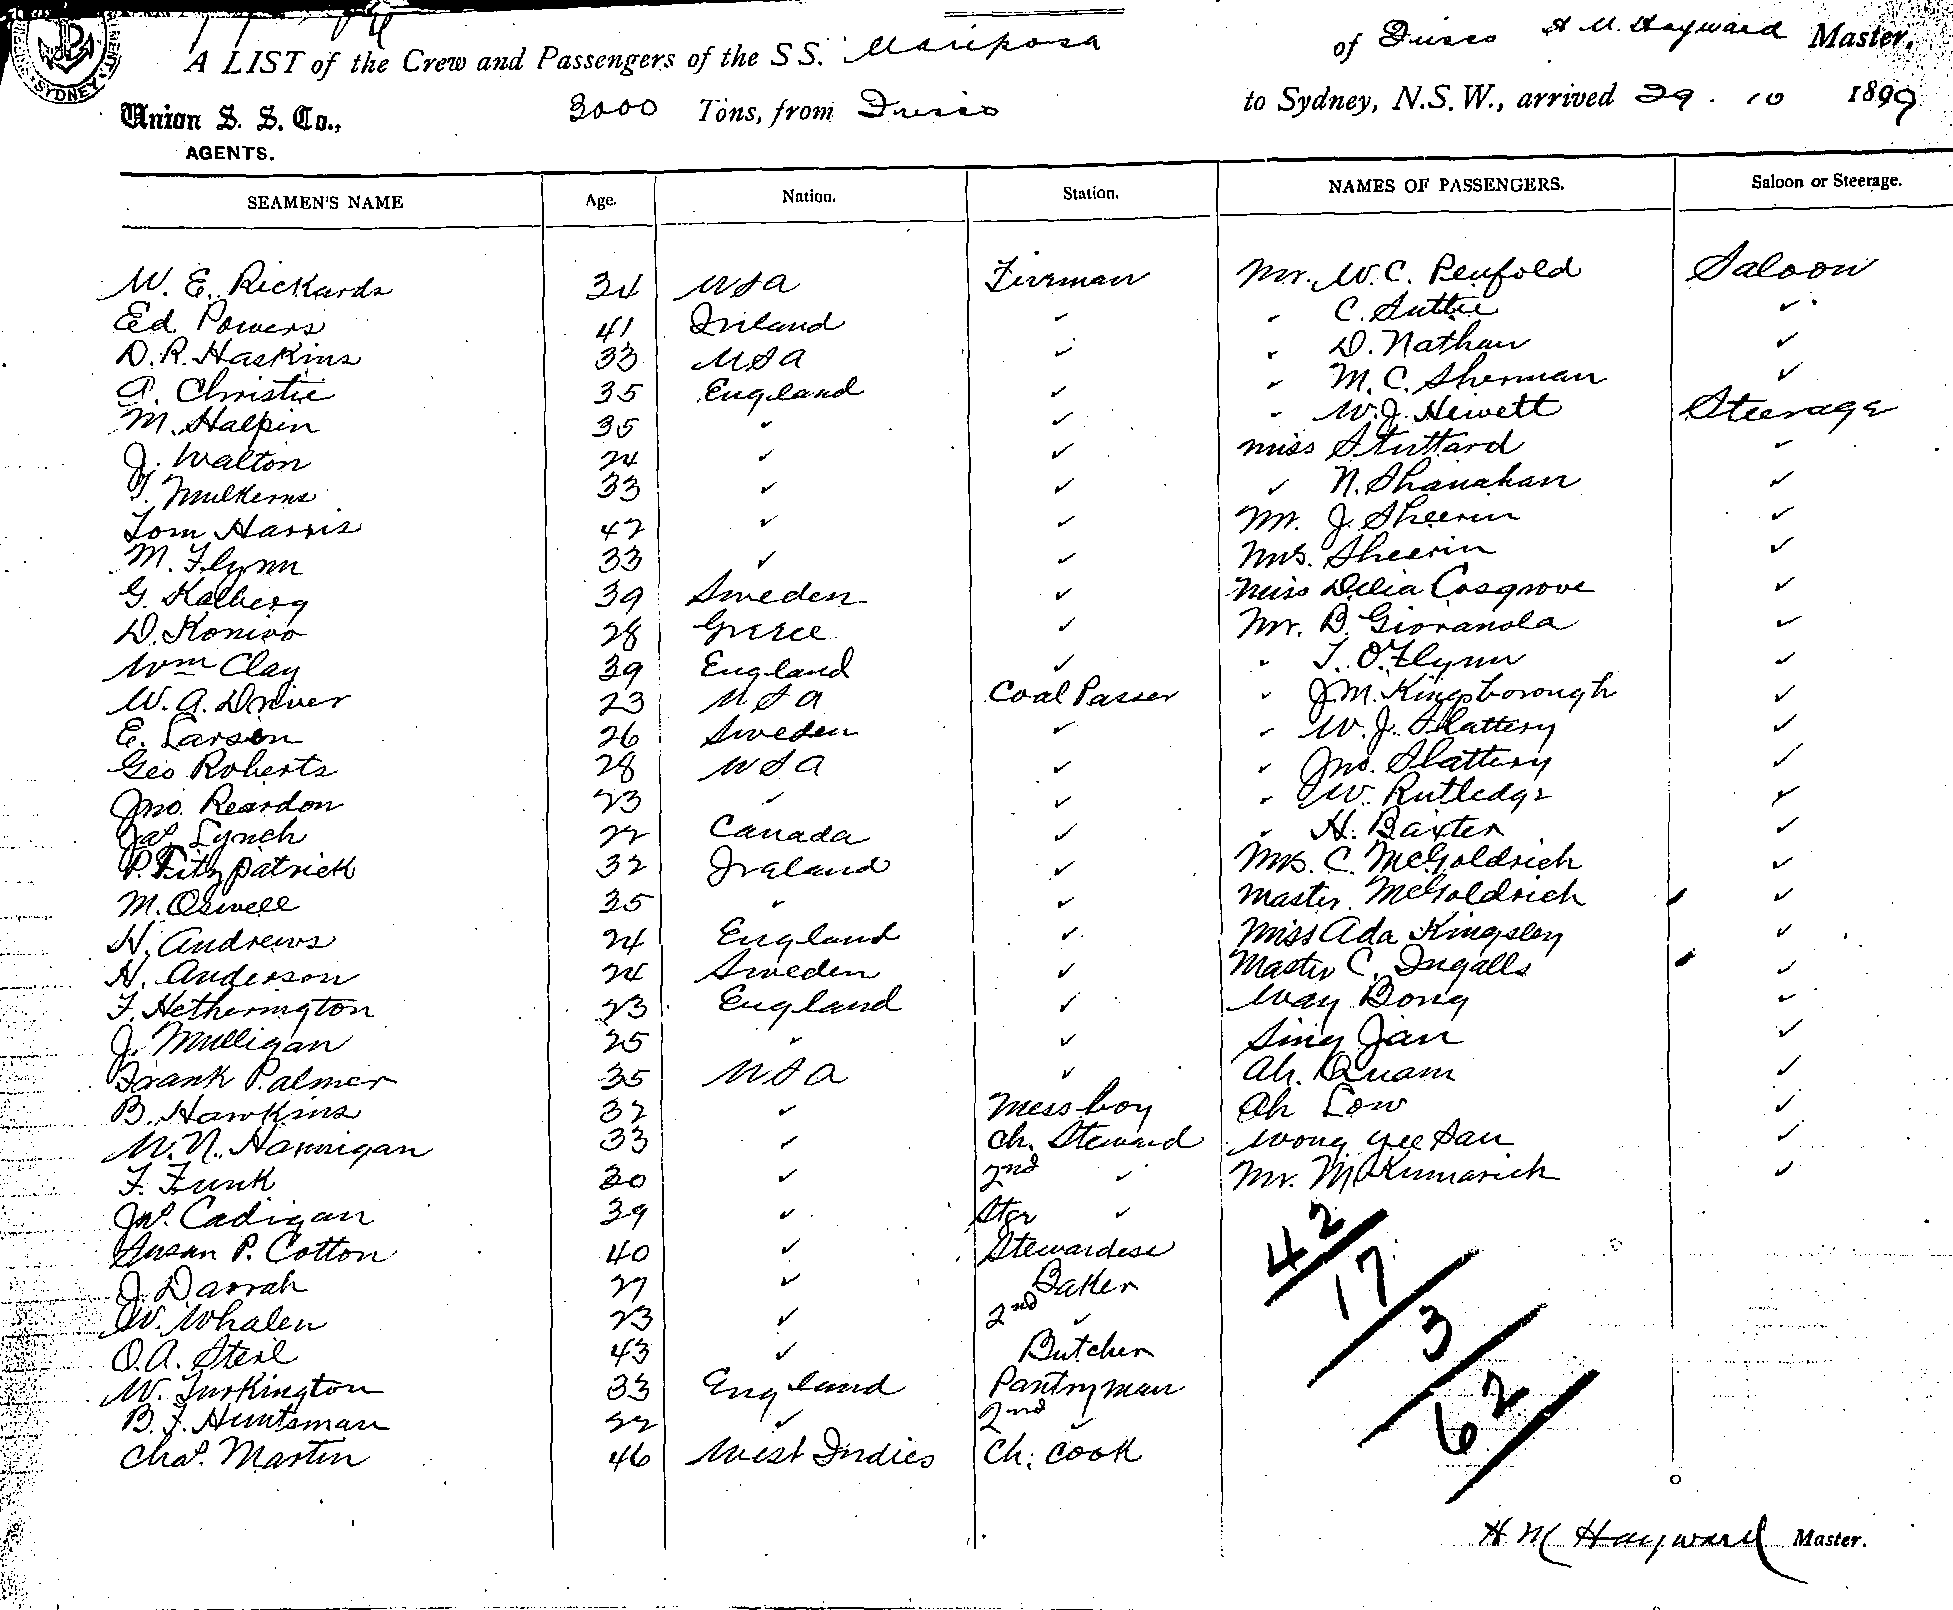 A LIST of the Crew and Passengers of the SS. Mariposa of Frisco H. M. Hayward Master,
SYDNEY
Union S. S. Co., 3000 Tons, from Frisco to Sydney, N.S.W., arrived 29. 10 1899
AGENTS.
SEAMEN'S NAME Age. Nation. Station. NAMES OF PASSENGERS. Saloon or Steerage.
W. E. Rickards 34 USA Fireman Mr. W. C. Penfold Saloon
Ed. Powers 41 Ireland ✓ " C. Suttie ✓
D. R. Haskins 33 USA ✓ " D. Nathan ✓
A. Christie 35 England ✓ " M. C. Sherman ✓
M. Halpin 35 ✓ ✓ " W. J. Hewett Steerage
J. Walton 24 ✓ ✓ Miss Stuttard ✓
T. Mulkerns 33 ✓ ✓ ✓ N. Shanahan ✓
Tom Harris 42 ✓ ✓ Mr. J. Sheerin ✓
M. Flynn 33 ✓ ✓ Mrs. Sheerin ✓
G. Kalberg 39 Sweden ✓ Miss Delia Cosgrove ✓
D. Konivo 28 Greece ✓ Mr. B. Giovanola ✓
Wm Clay 39 England ✓ " T. O'Flynn ✓
W. A. Driver 23 USA Coal Passer " J. M. Kingsborough ✓
E. Larsen 26 Sweden ✓ " W. J. Slattery ✓
Geo Roberts 28 USA ✓ " Jno. Slattery ✓
Jno. Reardon 23 ✓ ✓ " W. Rutledge ✓
Jas. Lynch 22 Canada ✓ " H. Baxter ✓
P. Fitzpatrick 32 Iraland ✓ Mrs. C. McGoldrich ✓
M. Oswell 35 ✓ ✓ Master McGoldrich ✓
H. Andrews 24 England ✓ Miss Ada Kingsley ✓
H. Anderson 24 Sweden ✓ Master C. Ingalls ✓
F. Hetherington 23 England ✓ Way Bong ✓
J. Mulligan 25 ✓ ✓ Sing Jan ✓
Frank Palmer 35 USA ✓ Ah. Quam ✓
B. Hawkins 32 ✓ Mess boy Ah Low ✓
W. N. Hannigan 33 ✓ Ch. Steward Wong Yee San ✓
F. Funk 30 ✓ 2nd ✓ Mr. M. Kumarich ✓
Jas. Cadigan 39 ✓ Stge ✓
Susan P. Cotton 40 ✓ Stewardess
J. Darrah 27 ✓ Baker
W. Whalen 23 ✓ 2nd ✓
O. A. Steil 43 ✓ Butcher
W. Turkington 33 England Pantryman
B. F. Huntsman 22 ✓ 2nd ✓
Chas. Martin 46 West Indies Ch. Cook
42
17
3
62
H M Hayward Master.